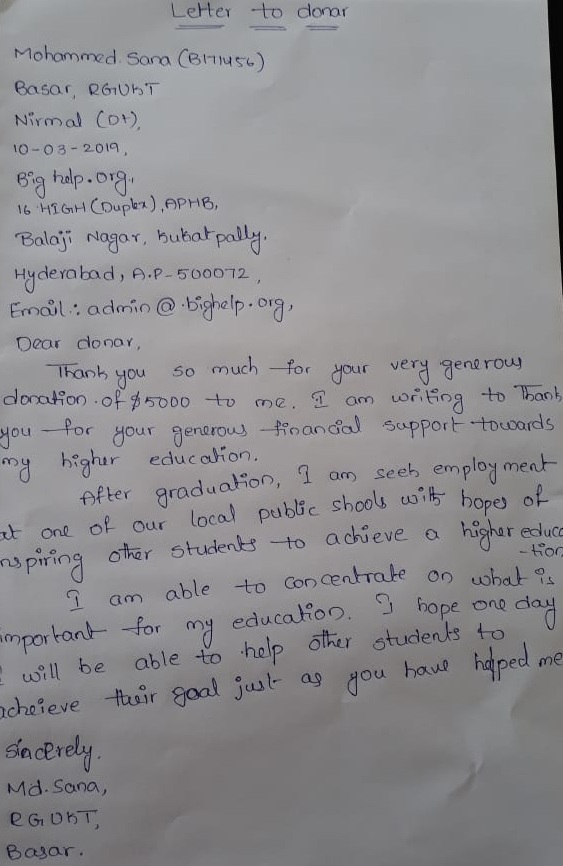 Letter to donar
Mohammed. Sana (B171456)
Basar, RGUKT
Nirmal (Dt),
10-03-2019,
Big help.org,
16 HIGH (Duplex), APHB,
Balaji Nagar, Kukatpally.
Hyderabad, A.P-500072,
Email.: admin@.bighelp.org,
Dear donar,
Thank you so much for your very generous
donation of $5000 to me. I am writing to Thank
you for your generous financial support towards
my higher education.
After graduation, I am seek employment
at one of our local public shools with hopes of
nspiring other students to achieve a higher educa
-tion
I am able to concentrate on what is
important for my education. I hope one day
I will be able to help other students to
acheieve their goal just as you have helped me
Sincerely.
Md. Sana,
RGUKT,
Basar.